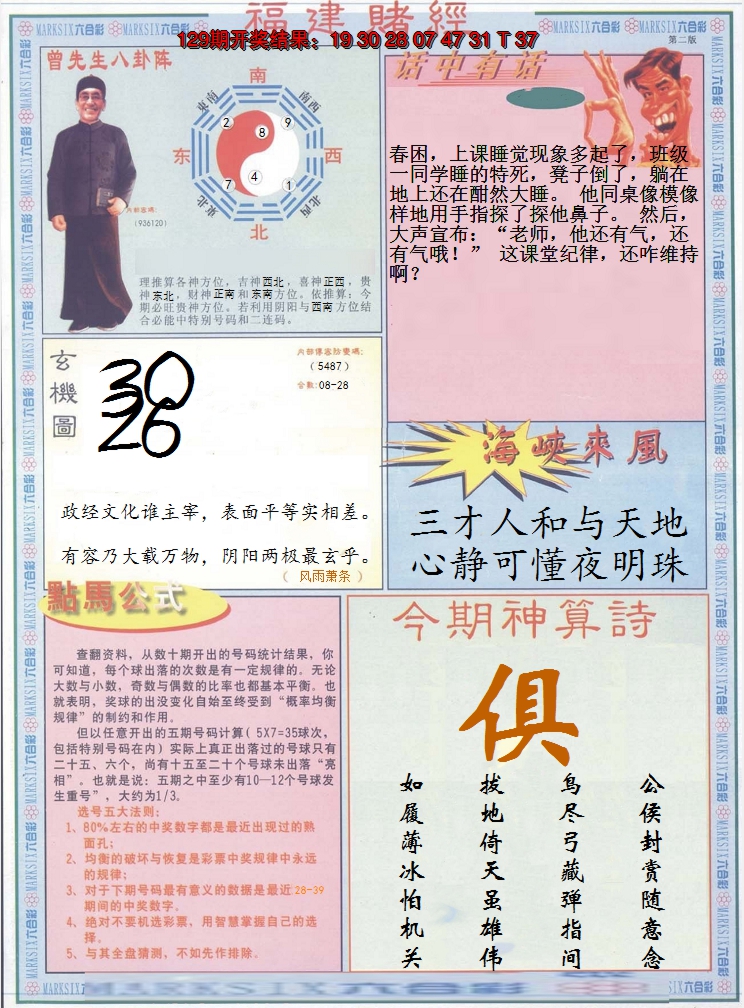 福建賭經
129期开奖结果：19 30 28 07 47 31 T 37
第二版
曾先生八卦阵
南
东南
西南
2
8
9
东
西
7
4
1
东北
西北
北
内部密碼：
（936120）
理推算各神方位，吉神西北，喜神正西，贵
神东北，财神正南和东南方位。依推算：今
期必旺贵神方位。若利用阴阳与西南方位结
合必能中特别号码和二连码。
话中有话
春困，上课睡觉现象多起了，班级
一同学睡的特死，凳子倒了，躺在
地上还在酣然大睡。 他同桌像模像
样地用手指探了探他鼻子。 然后，
大声宣布：“老师，他还有气，还
有气哦！” 这课堂纪律，还咋维持
啊？
玄機圖
30
26
（5487）
合数:08-28
政经文化谁主宰，表面平等实相差。
有容乃大载万物，阴阳两极最玄乎。
（ 风雨萧条 ）
海峽來風
三才人和与天地
心静可懂夜明珠
點馬公式
查翻资料，从数十期开出的号码统计结果，你
可知道，每个球出落的次数是有一定规律的。无论
大数与小数，奇数与偶数的比率也都基本平衡。也
就表明，奖球的出没变化自始至终受到“概率均衡
规律”的制约和作用。
但以任意开出的五期号码计算（5X7=35球次，
包括特别号码在内）实际上真正出落过的号球只有
二十五、六个，尚有十五至二十个号球未出落“亮
相”。也就是说：五期之中至少有10—12个号球发
生重号”，大约为1/3。
选号五大法则：
1、80%左右的中奖数字都是最近出现过的熟
面孔；
2、均衡的破坏与恢复是彩票中奖规律中永远
的规律；
3、对于下期号码最有意义的数据是最近28-39
期间的中奖数字。
4、绝对不要机选彩票，用智慧掌握自己的选
择。
5、与其全盘猜测，不如先作排除。
今期神算詩
俱
公侯封赏随意念
鸟尽弓藏弹指间
拔地倚天虽雄伟
如履薄冰怕机关
MARKSIX六合彩